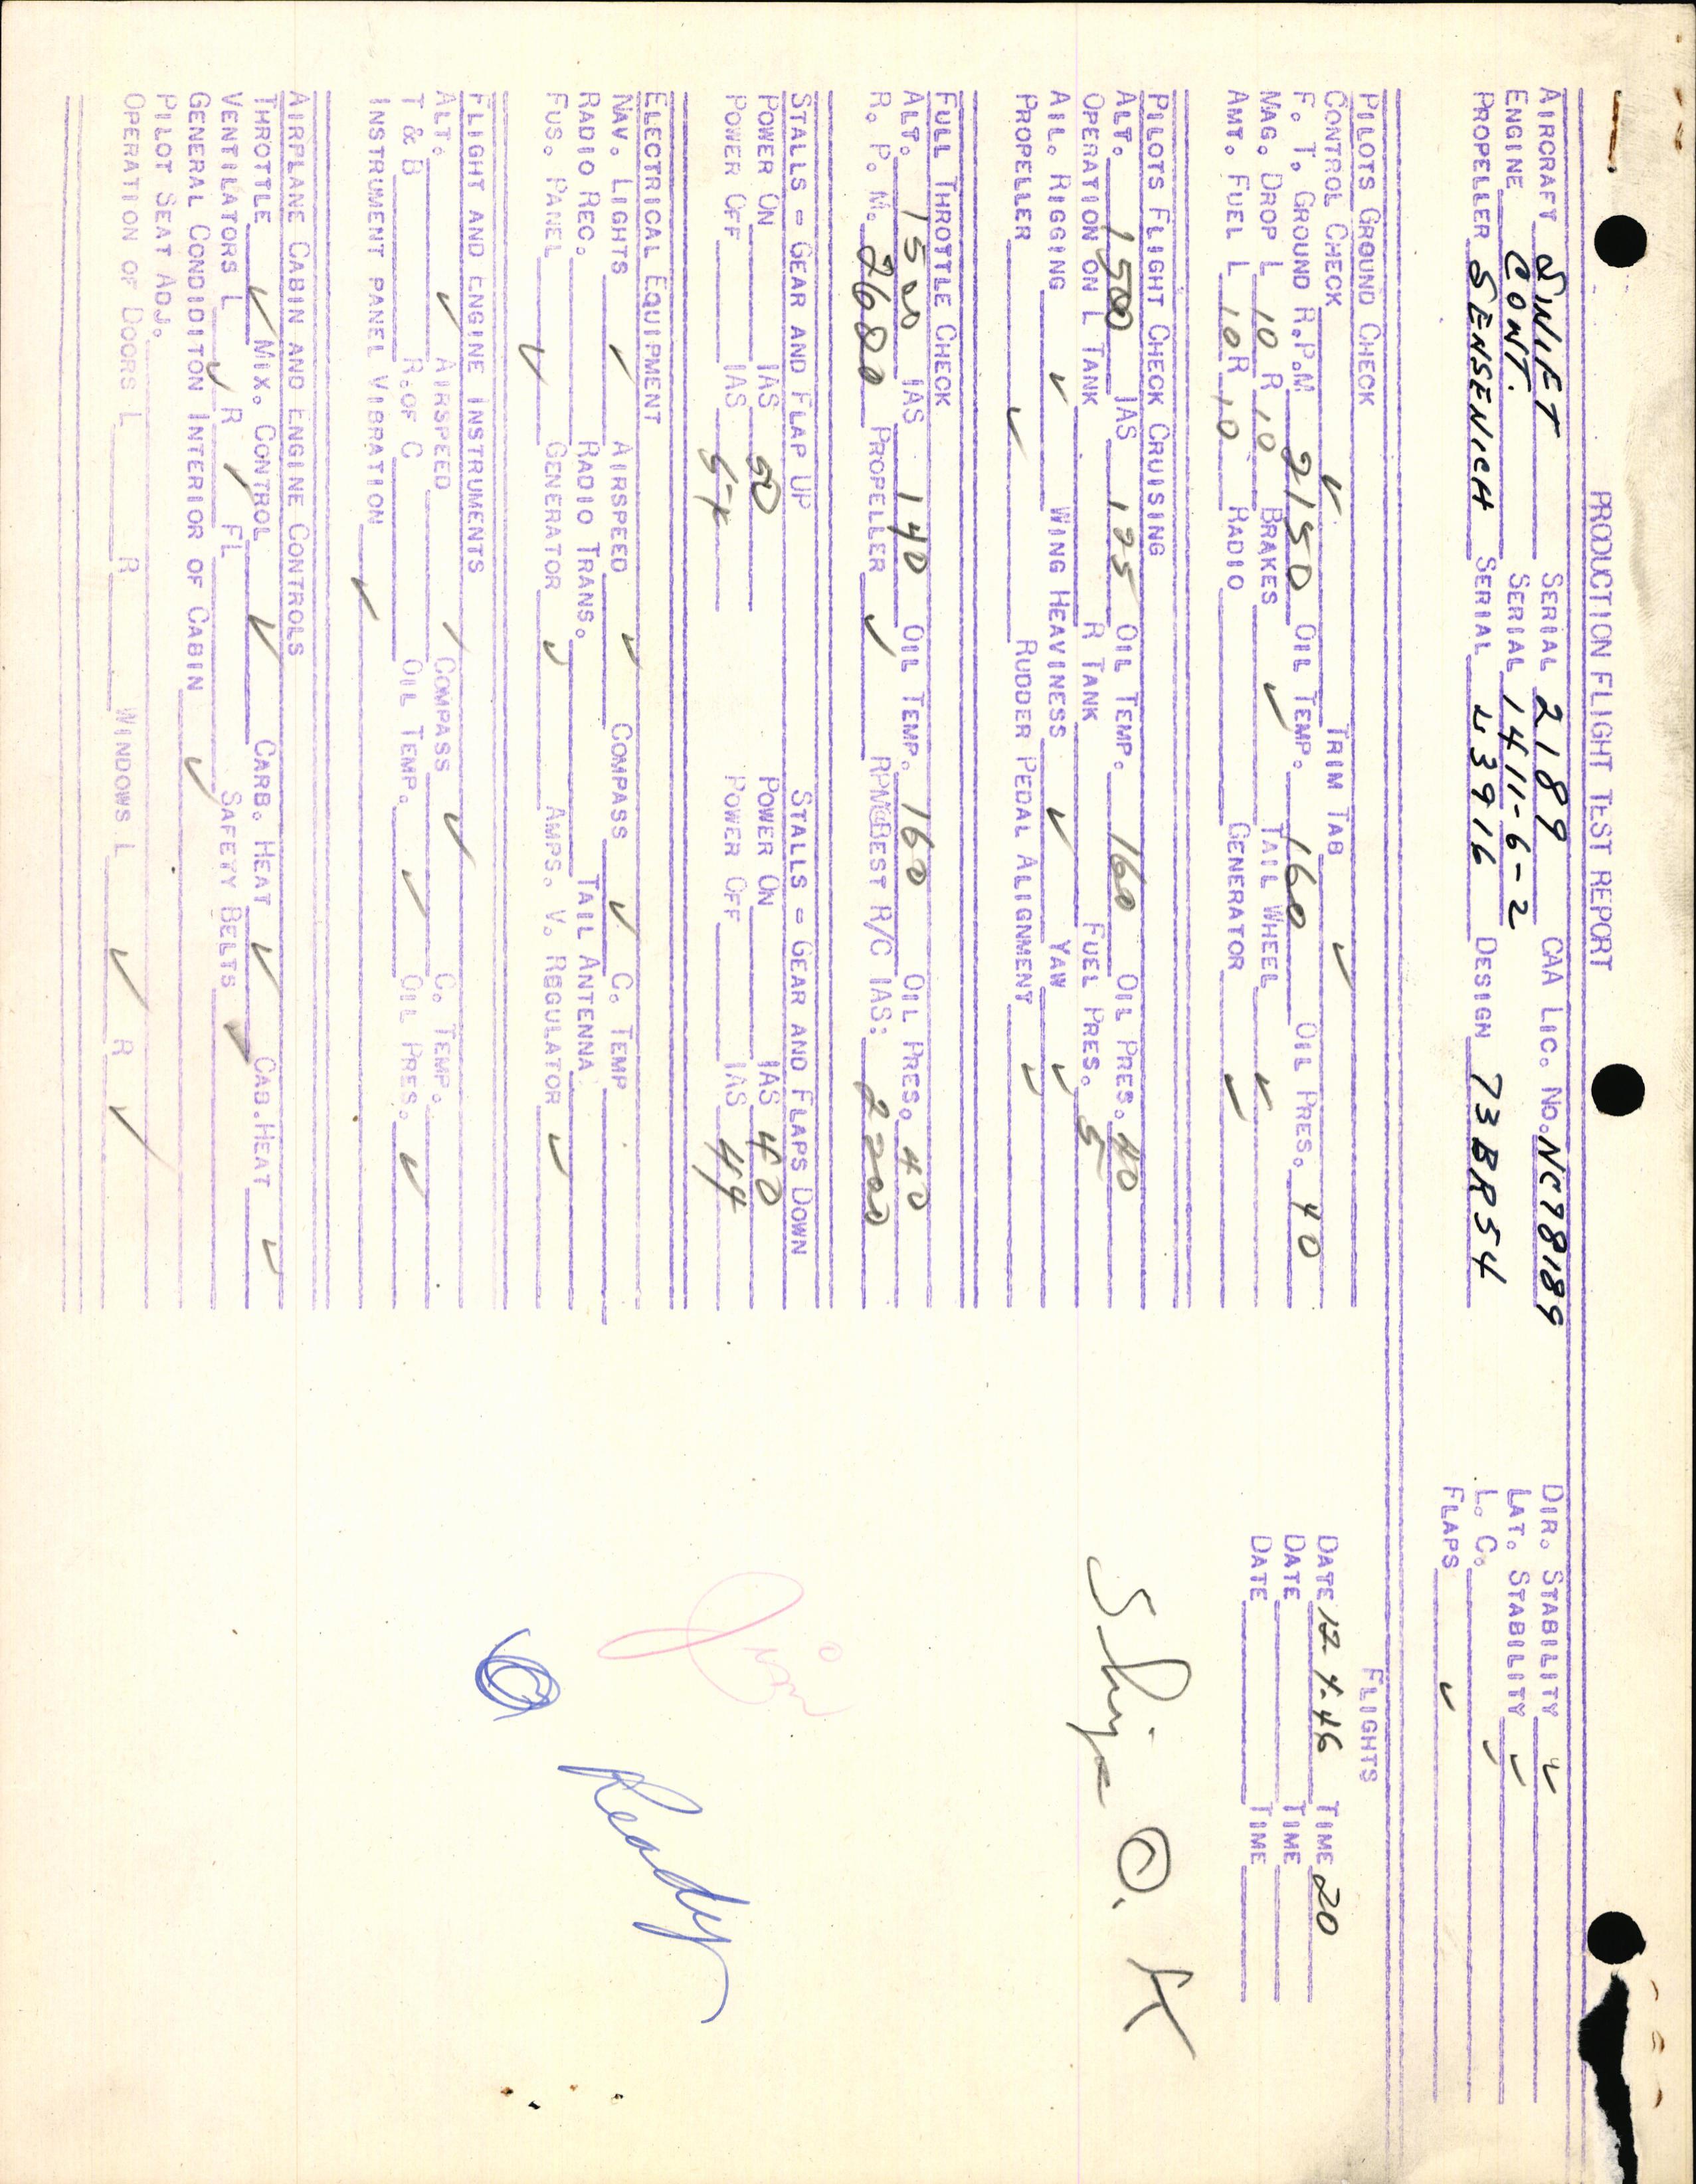 PRODUCTION FLIGHT TEST REPORT
AIRCRAFT SWIFT SERIAL 2189 CAA LIC. NO. NC78189
ENGINE CONT. SERIAL 1411-6-2
PROPELLER SENSENICH SERIAL 43916 DESIGN 73BR54
DIR. STABILITY ✓
LAT. STABILITY ✓
L. C. ✓
FLAPS ✓
PILOTS GROUND CHECK
CONTROL CHECK ✓ TRIM TAB ✓
F. T. GROUND R.P.M 2150 OIL TEMP. 160 OIL PRES. 40
MAG. DROP L 10 R 10 BRAKES ✓ TAIL WHEEL ✓
AMT. FUEL L 10 R 10 RADIO GENERATOR ✓
FLIGHTS
DATE 12-4-46 TIME 20
DATE TIME
DATE TIME
PILOTS FLIGHT CHECK CRUISING
ALT. 1500 IAS 125 OIL TEMP. 160 OIL PRES. 40
OPERATION ON L TANK R TANK FUEL PRES. 5
AIL. RIGGING ✓ WING HEAVINESS ✓ YAW ✓
PROPELLER ✓ RUDDER PEDAL ALIGNMENT ✓
FULL THROTTLE CHECK
ALT. 1500 IAS 140 OIL TEMP. 160 OIL PRES. 40
R. P. M. 2680 PROPELLER ✓ RPM@BEST R/C IAS: 2200
STALLS = GEAR AND FLAP UP STALLS = GEAR AND FLAPS DOWN
POWER ON IAS 50 POWER ON IAS 40
POWER OFF IAS POWER OFF IAS 44
ELECTRICAL EQUIPMENT
NAV. LIGHTS ✓ AIRSPEED ✓ COMPASS ✓ C. TEMP
RADIO REC. RADIO TRANS. TAIL ANTENNA
FUS. PANEL ✓ GENERATOR ✓ AMPS. V. REGULATOR ✓
FLIGHT AND ENGINE INSTRUMENTS
ALT. ✓ AIRSPEED ✓ COMPASS ✓ C. TEMP.
T & B R.OF C OIL TEMP. ✓ OIL PRES. ✓
INSTRUMENT PANEL VIBRATION ✓
AIRPLANE CABIN AND ENGINE CONTROLS
THROTTLE ✓ MIX. CONTROL ✓ CARB. HEAT ✓ CAB.HEAT ✓
VENTILATORS L ✓ R ✓ FL SAFETY BELTS ✓
GENERAL CONDIDITON INTERIOR OF CABIN ✓
PILOT SEAT ADJ.
OPERATION OF DOORS L R WINDOWS L ✓ R ✓
Ship O. K
Ready